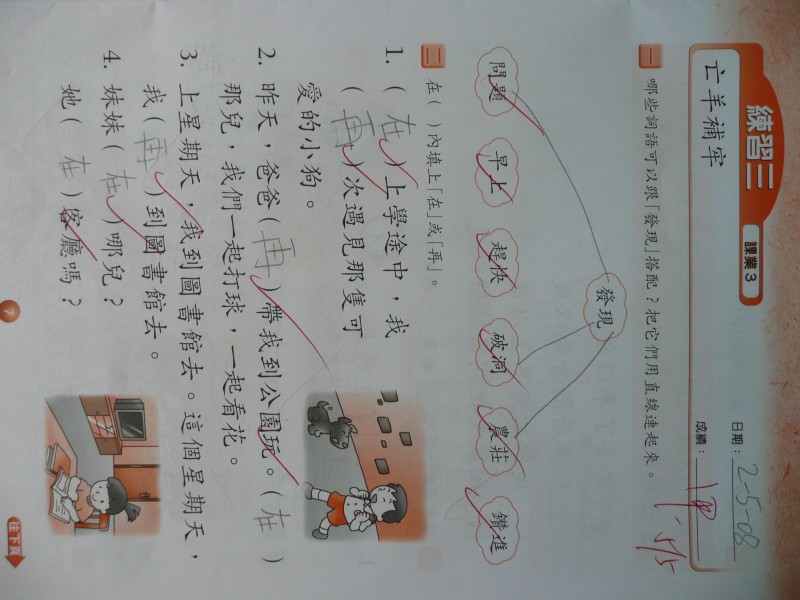 練習三
課業 3
亡羊補牢
日期：2-5-08
成績：甲
一 哪些詞語可以跟「發現」搭配？把它們用直線連起來。
發現
問題 早上 趕快 破洞 農莊 錯進
二 在（ ）內填上「在」或「再」。
1.（ 在 ）上學途中，我
（ 再 ）次遇見那隻可
愛的小狗。
2. 昨天，爸爸（ 再 ）帶我到公園玩。（ 在 ）
那兒，我們一起打球，一起看花。
3. 上星期天，我到圖書館去。這個星期天，
我（ 再 ）到圖書館去。
4. 妹妹（ 在 ）哪兒？
她（ 在 ）客廳嗎？
7
往下頁